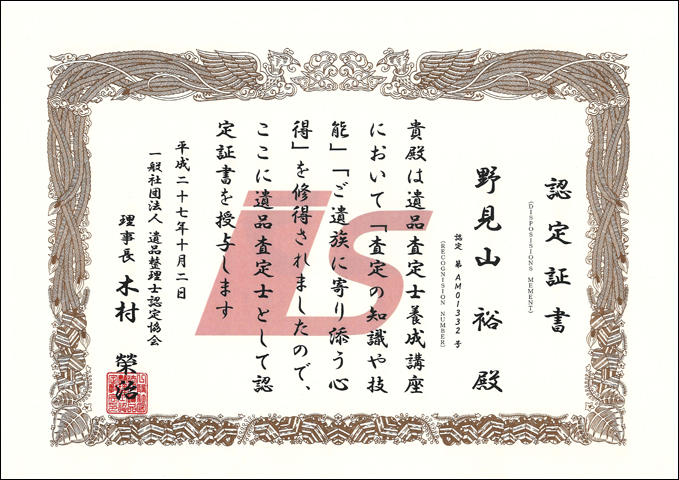 認定証書
(DISPOSISIONS MEMENT)
野見山 裕 殿
認定 第 AM01332 号
(RECOGNISION NUMBER)
貴殿は遺品査定士養成講座
において「査定の知識や技
能」「ご遺族に寄り添う心
得」を修得されましたので、
ここに遺品査定士として認
定証書を授与します
平成二十七年十月二日
一般社団法人 遺品整理士認定協会
理事長 木村 榮治
is